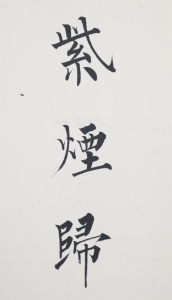 紫煙歸